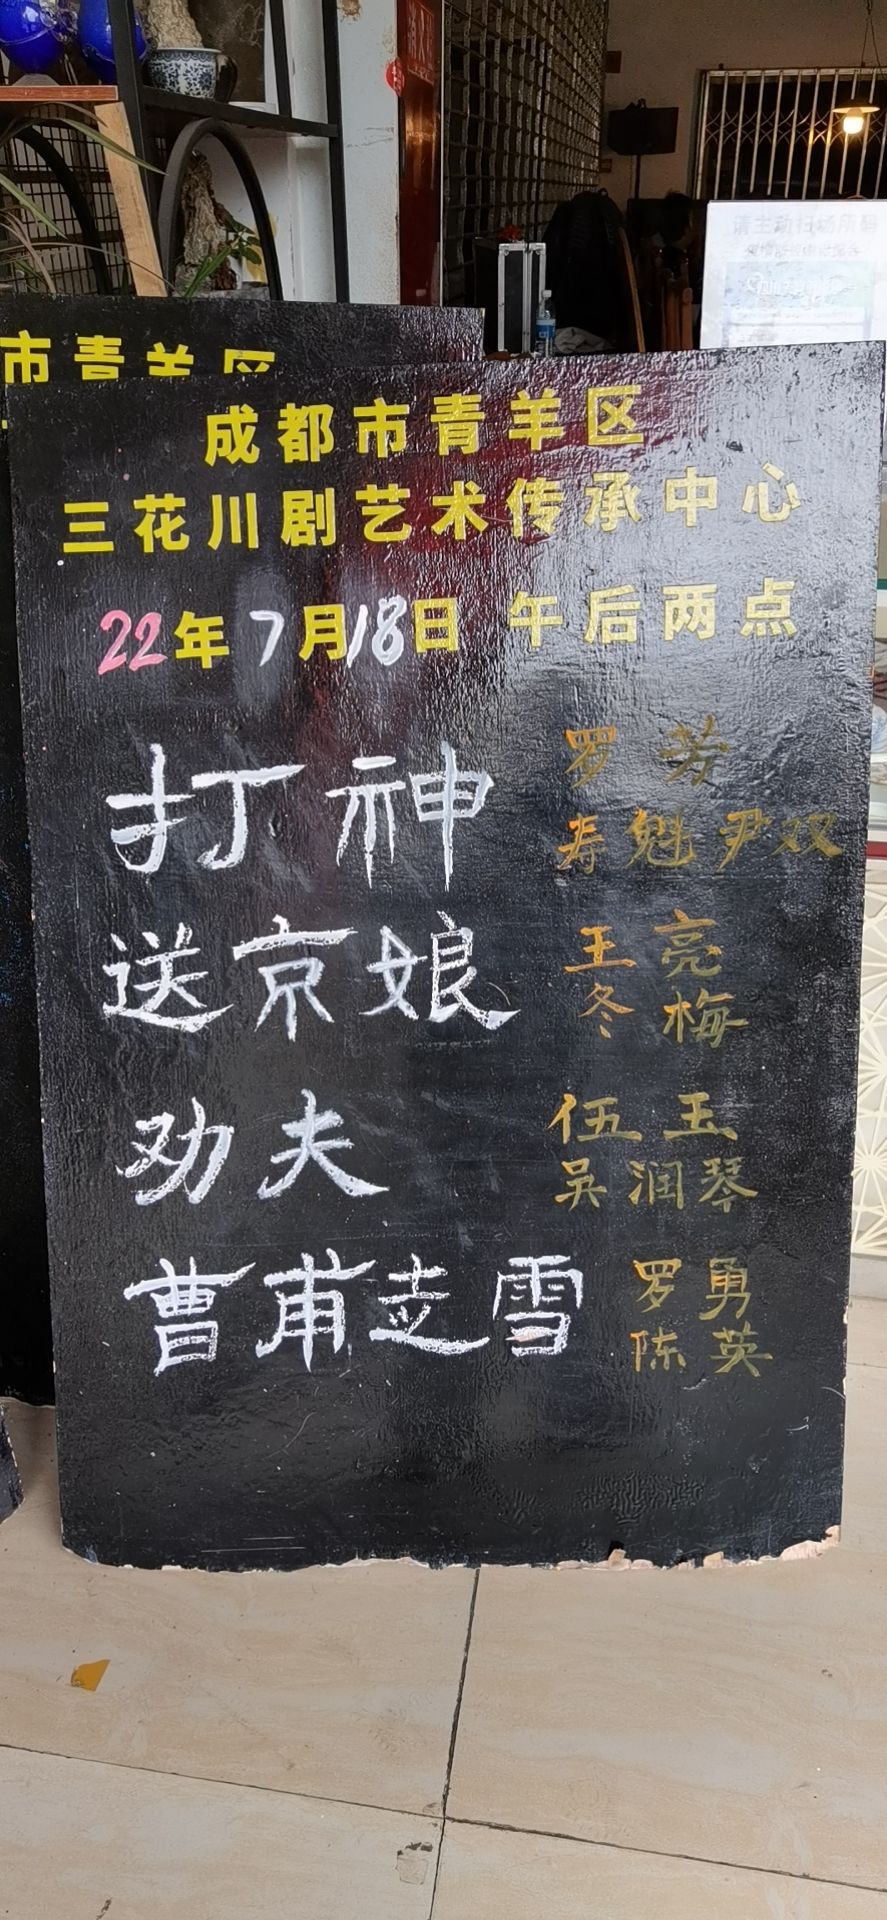 请主动扫场所码
市青羊区
成都市青羊区
三花川剧艺术传承中心
22年7月18日 午后两点
打神 罗芳
寿魁 尹双
送京娘 王亮
冬梅
劝夫 伍玉
吴润琴
曹甫走雪 罗勇
陈英